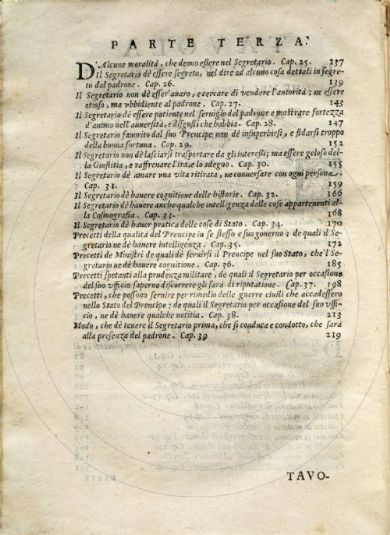 PARTE TERZA.
D'Alcune moralità, che deono essere nel Segretario. Cap. 25. 137
Il Segretario dè essere segreto, nel dire ad alcuno cosa dettali in segre-
to dal padrone. Cap. 26. 139
Il Segretario non dè esser auaro, e cercare di vendere l'autorità; ne essere
otioso, ma vbbidiente al padrone. Cap. 27. 143
Il Segretario dè essere patiente nel seruigio del padrone e mostrare fortezza
d'animo nell'auuersità, e disgusti che habbia. Cap. 28. 147
Il Segretario fauorito dal suo Prencipe non dè insuperbirsi, e fidarsi troppo
della buona fortuna. Cap. 29. 152
Il Segretario non dè lasciarsi trasportare da gli interessi; ma essere geloso del-
la Giustitia, e raffrenare l'ira, e lo sdegno. Cap. 30. 155
Il Segretario dè amare vna vita ritirata, ne conuersare con ogni persona.
Cap. 31. 159
Il Segretario dè hauere cognitione delle historie. Cap. 32. 166
Il Segretario dè hauere anche qualche intelligenza delle cose appartenenti al-
la Cosmografia. Cap. 33. 168
Il Segretario dè hauer pratica delle cose di Stato. Cap. 34. 170
Precetti della qualità del Prencipe in se stesso e suo gouerno; de quali il Se-
gretario ne dè hauere intelligenza. Cap. 35. 172
Precetti de Ministri de quali dè seruirsi il Prencipe nel suo Stato, che il Se-
gretario ne dè hauere cognitione. Cap. 36. 185
Precetti spetanti alla prudenza militare, de quali il Segretario per occasione
del suo vfficio saperne discorrere gli sarà di riputatione. Cap. 37. 198
Precetti, che possono seruire per rimedio delle guerre ciuili che accadessero
nello Stato del Prencipe; de quali il Segretario per occasione del suo vffi-
cio, ne dè hauere qualche notitia. Cap. 38. 213
Modo, che dè tenere il Segretario prima, che si conduca e condotto, che sarà
alla presenza del padrone. Cap. 39 219
TAVO-